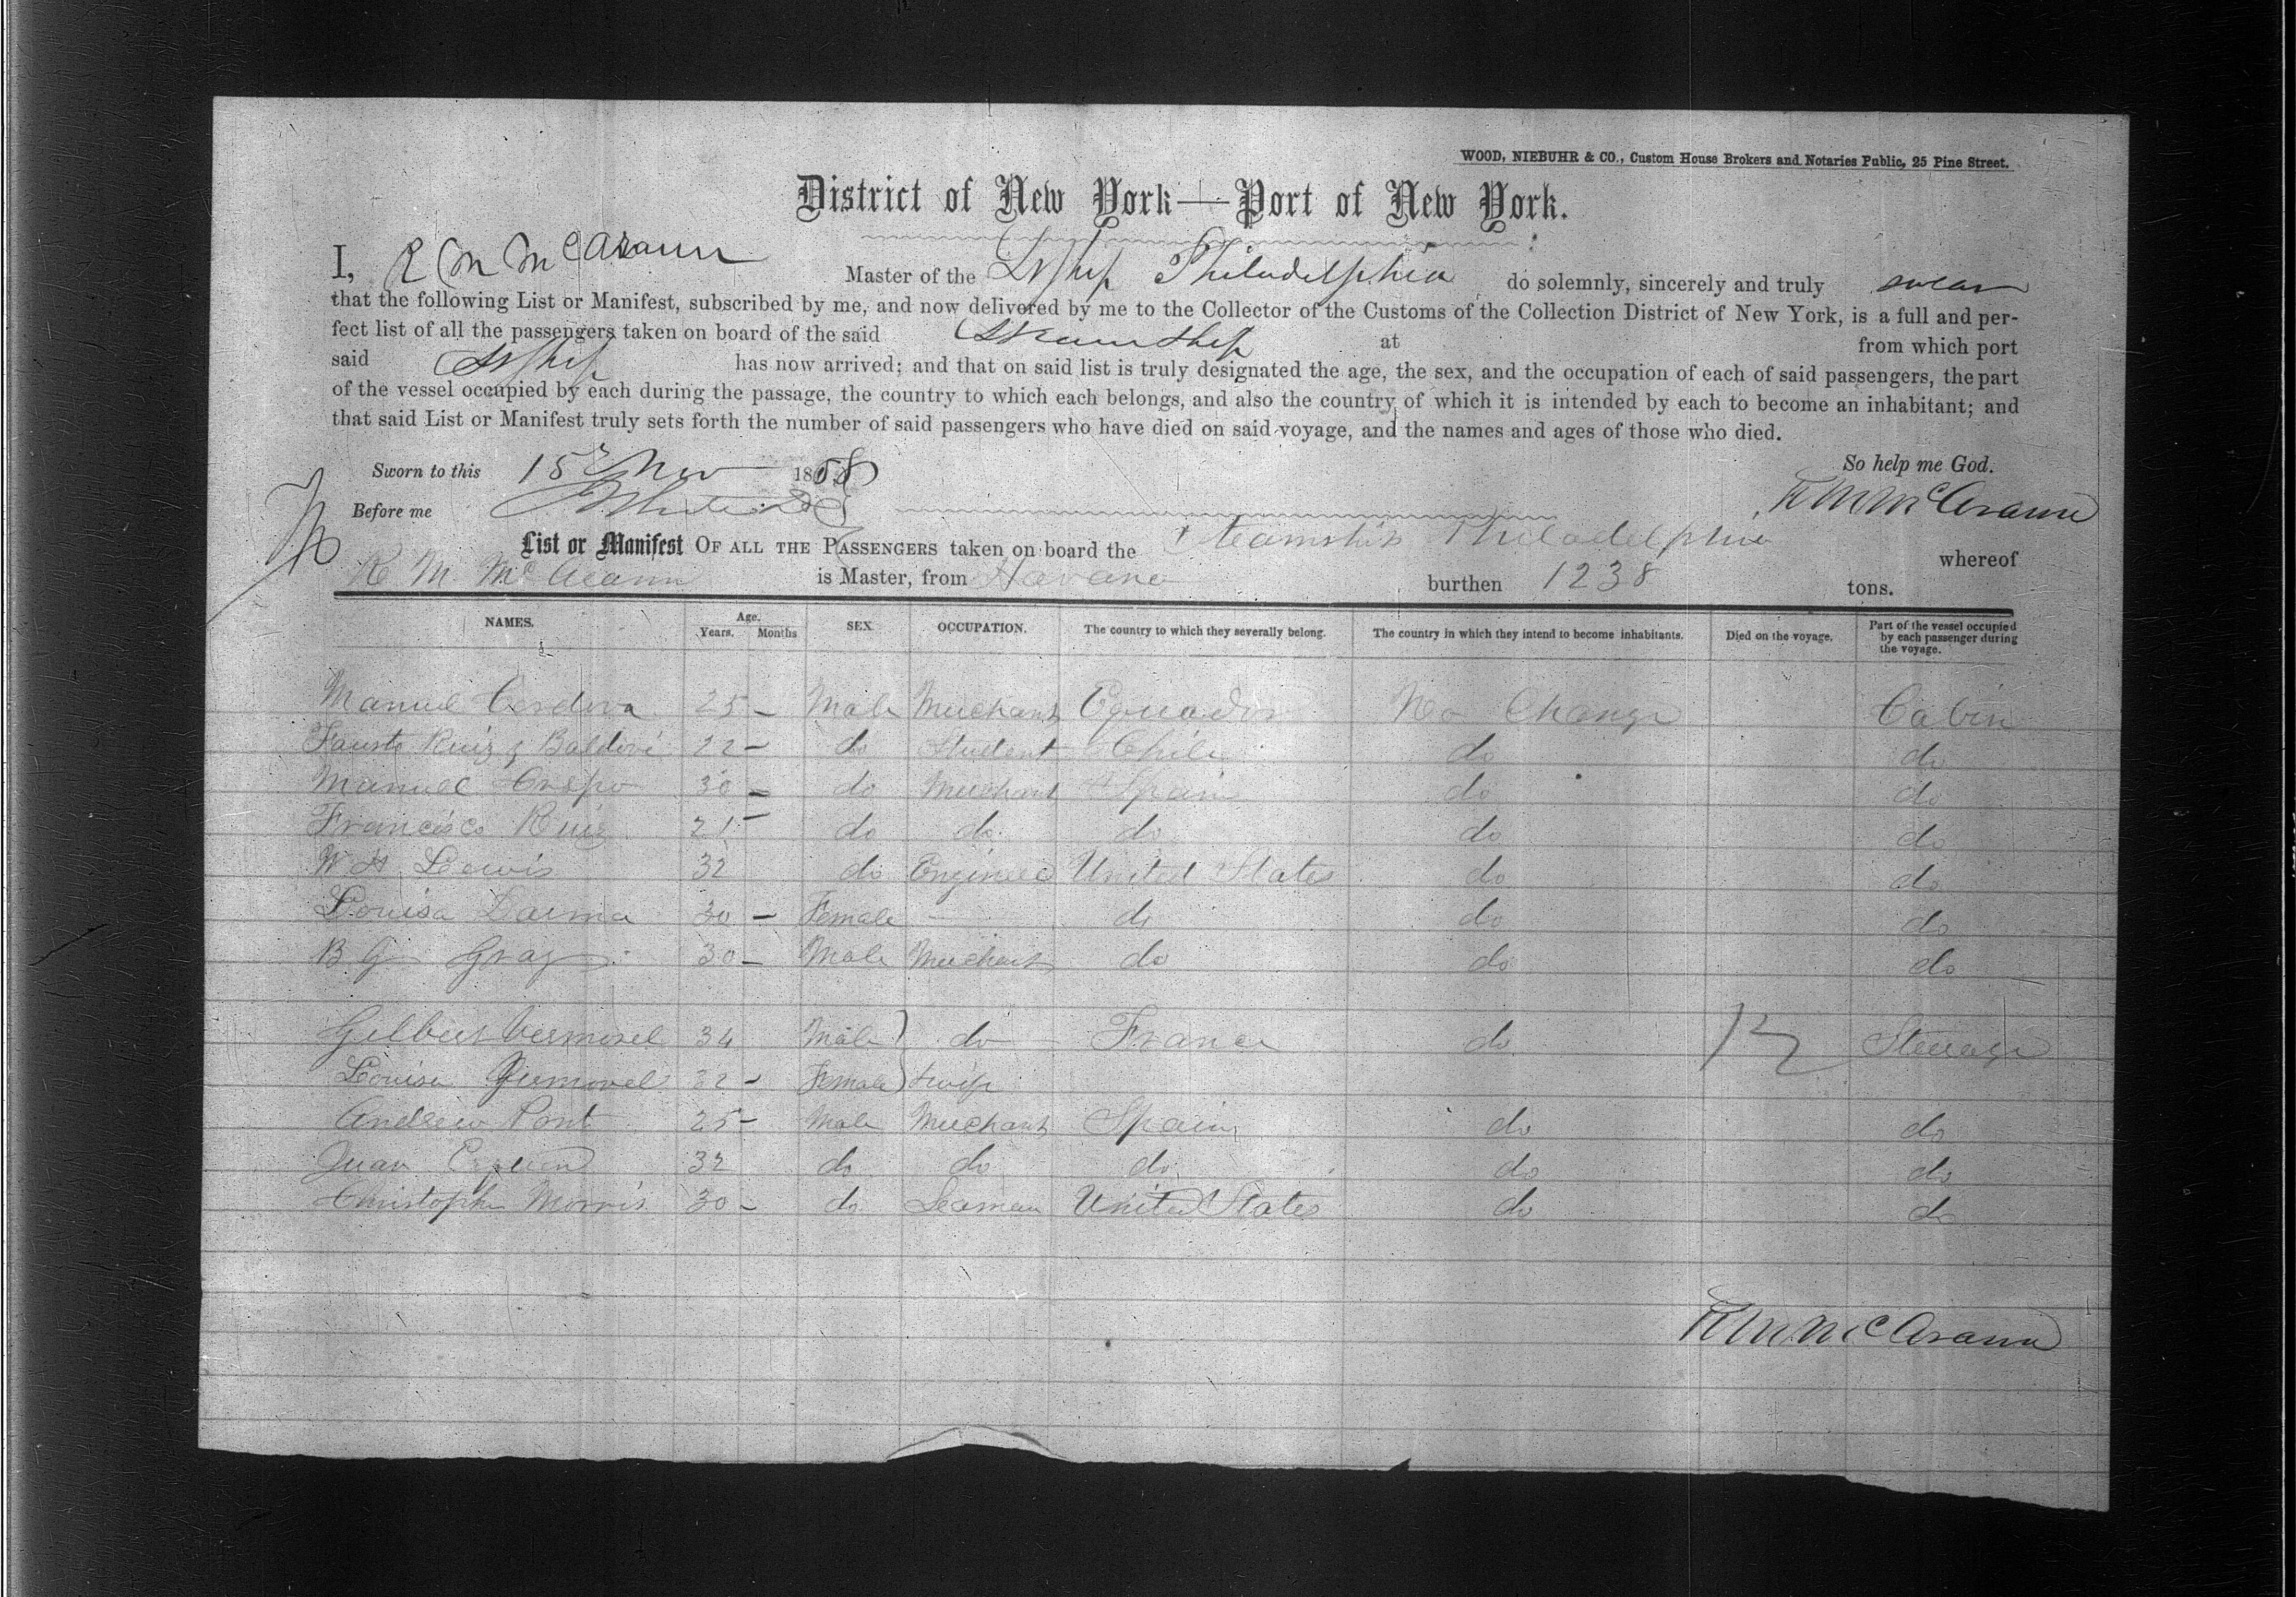 WOOD, NIEBUHR & CO., Custom House Brokers and Notaries Public, 25 Pine Street.
District of New York—Port of New York.
I, R M McArann Master of the StShip Philadelphia do solemnly, sincerely and truly swear
that the following List or Manifest, subscribed by me, and now delivered by me to the Collector of the Customs of the Collection District of New York, is a full and per-
fect list of all the passengers taken on board of the said Steamship at from which port
said StShip has now arrived; and that on said list is truly designated the age, the sex, and the occupation of each of said passengers, the part
of the vessel occupied by each during the passage, the country to which each belongs, and also the country of which it is intended by each to become an inhabitant; and
that said List or Manifest truly sets forth the number of said passengers who have died on said voyage, and the names and ages of those who died.
Sworn to this 15 Nov 1858 So help me God.
Before me R M McArann
List or Manifest OF ALL THE PASSENGERS taken on board the Steamship Philadelphia whereof
R M McArann is Master, from Havana burthen 1238 tons.
NAMES. Age. Years. Months SEX. OCCUPATION. The country to which they severally belong. The country in which they intend to become inhabitants. Died on the voyage. Part of the vessel occupied by each passenger during the voyage.
Manuel Cordova 25 - Male Merchant Equador No Change Cabin
Fausto Ruiz y Baldovi 22 - do Student Chile do do
Manuel Crespo 30 - do Merchant Spain do do
Francisco Ruiz 21 - do do do do do
W H Lewis 32 do Engineer United States do do
Louisa Darma 30 - Female — do do do
B G Gray 30 - Male Merchant do do do
Gilbert Vermorel 34 Male do France do 12 Steerage
Louisa 32 - Female wife
Andrew Pont 25 - Male Merchant Spain do do
Juan 32 do do do do do
Christopher Morris 30 - do Seaman United States do do
R M McArann